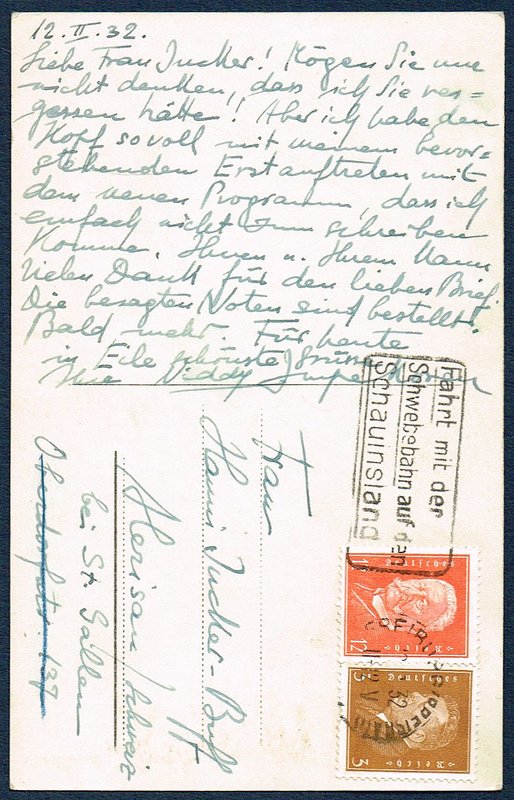 12. II. 32.
Liebe Frau Jucker! Mögen Sie nur
nicht denken, dass ich Sie ver=
gessen hätte!! Aber ich habe den
Kopf so voll mit meinem bevor=
stehenden Erstauftreten mit
dem neuen Programm, dass ich
einfach nicht zum schreiben
komme. Ihnen u. Ihrem Mann
vielen Dank für den lieben Brief.
Die besagten Noten sind bestellt.
Bald mehr. Für heute
in Eile schönste Grüsse
Ihre Niddy Impekoven
Fahrt mit der
Schwebebahn auf den
Schauinsland
Frau
Hanni Jucker-Buff
Herisau/Schweiz
bei St. Gallen
137
Deutsches
Reich
12
Deutsches
Reich
3
32